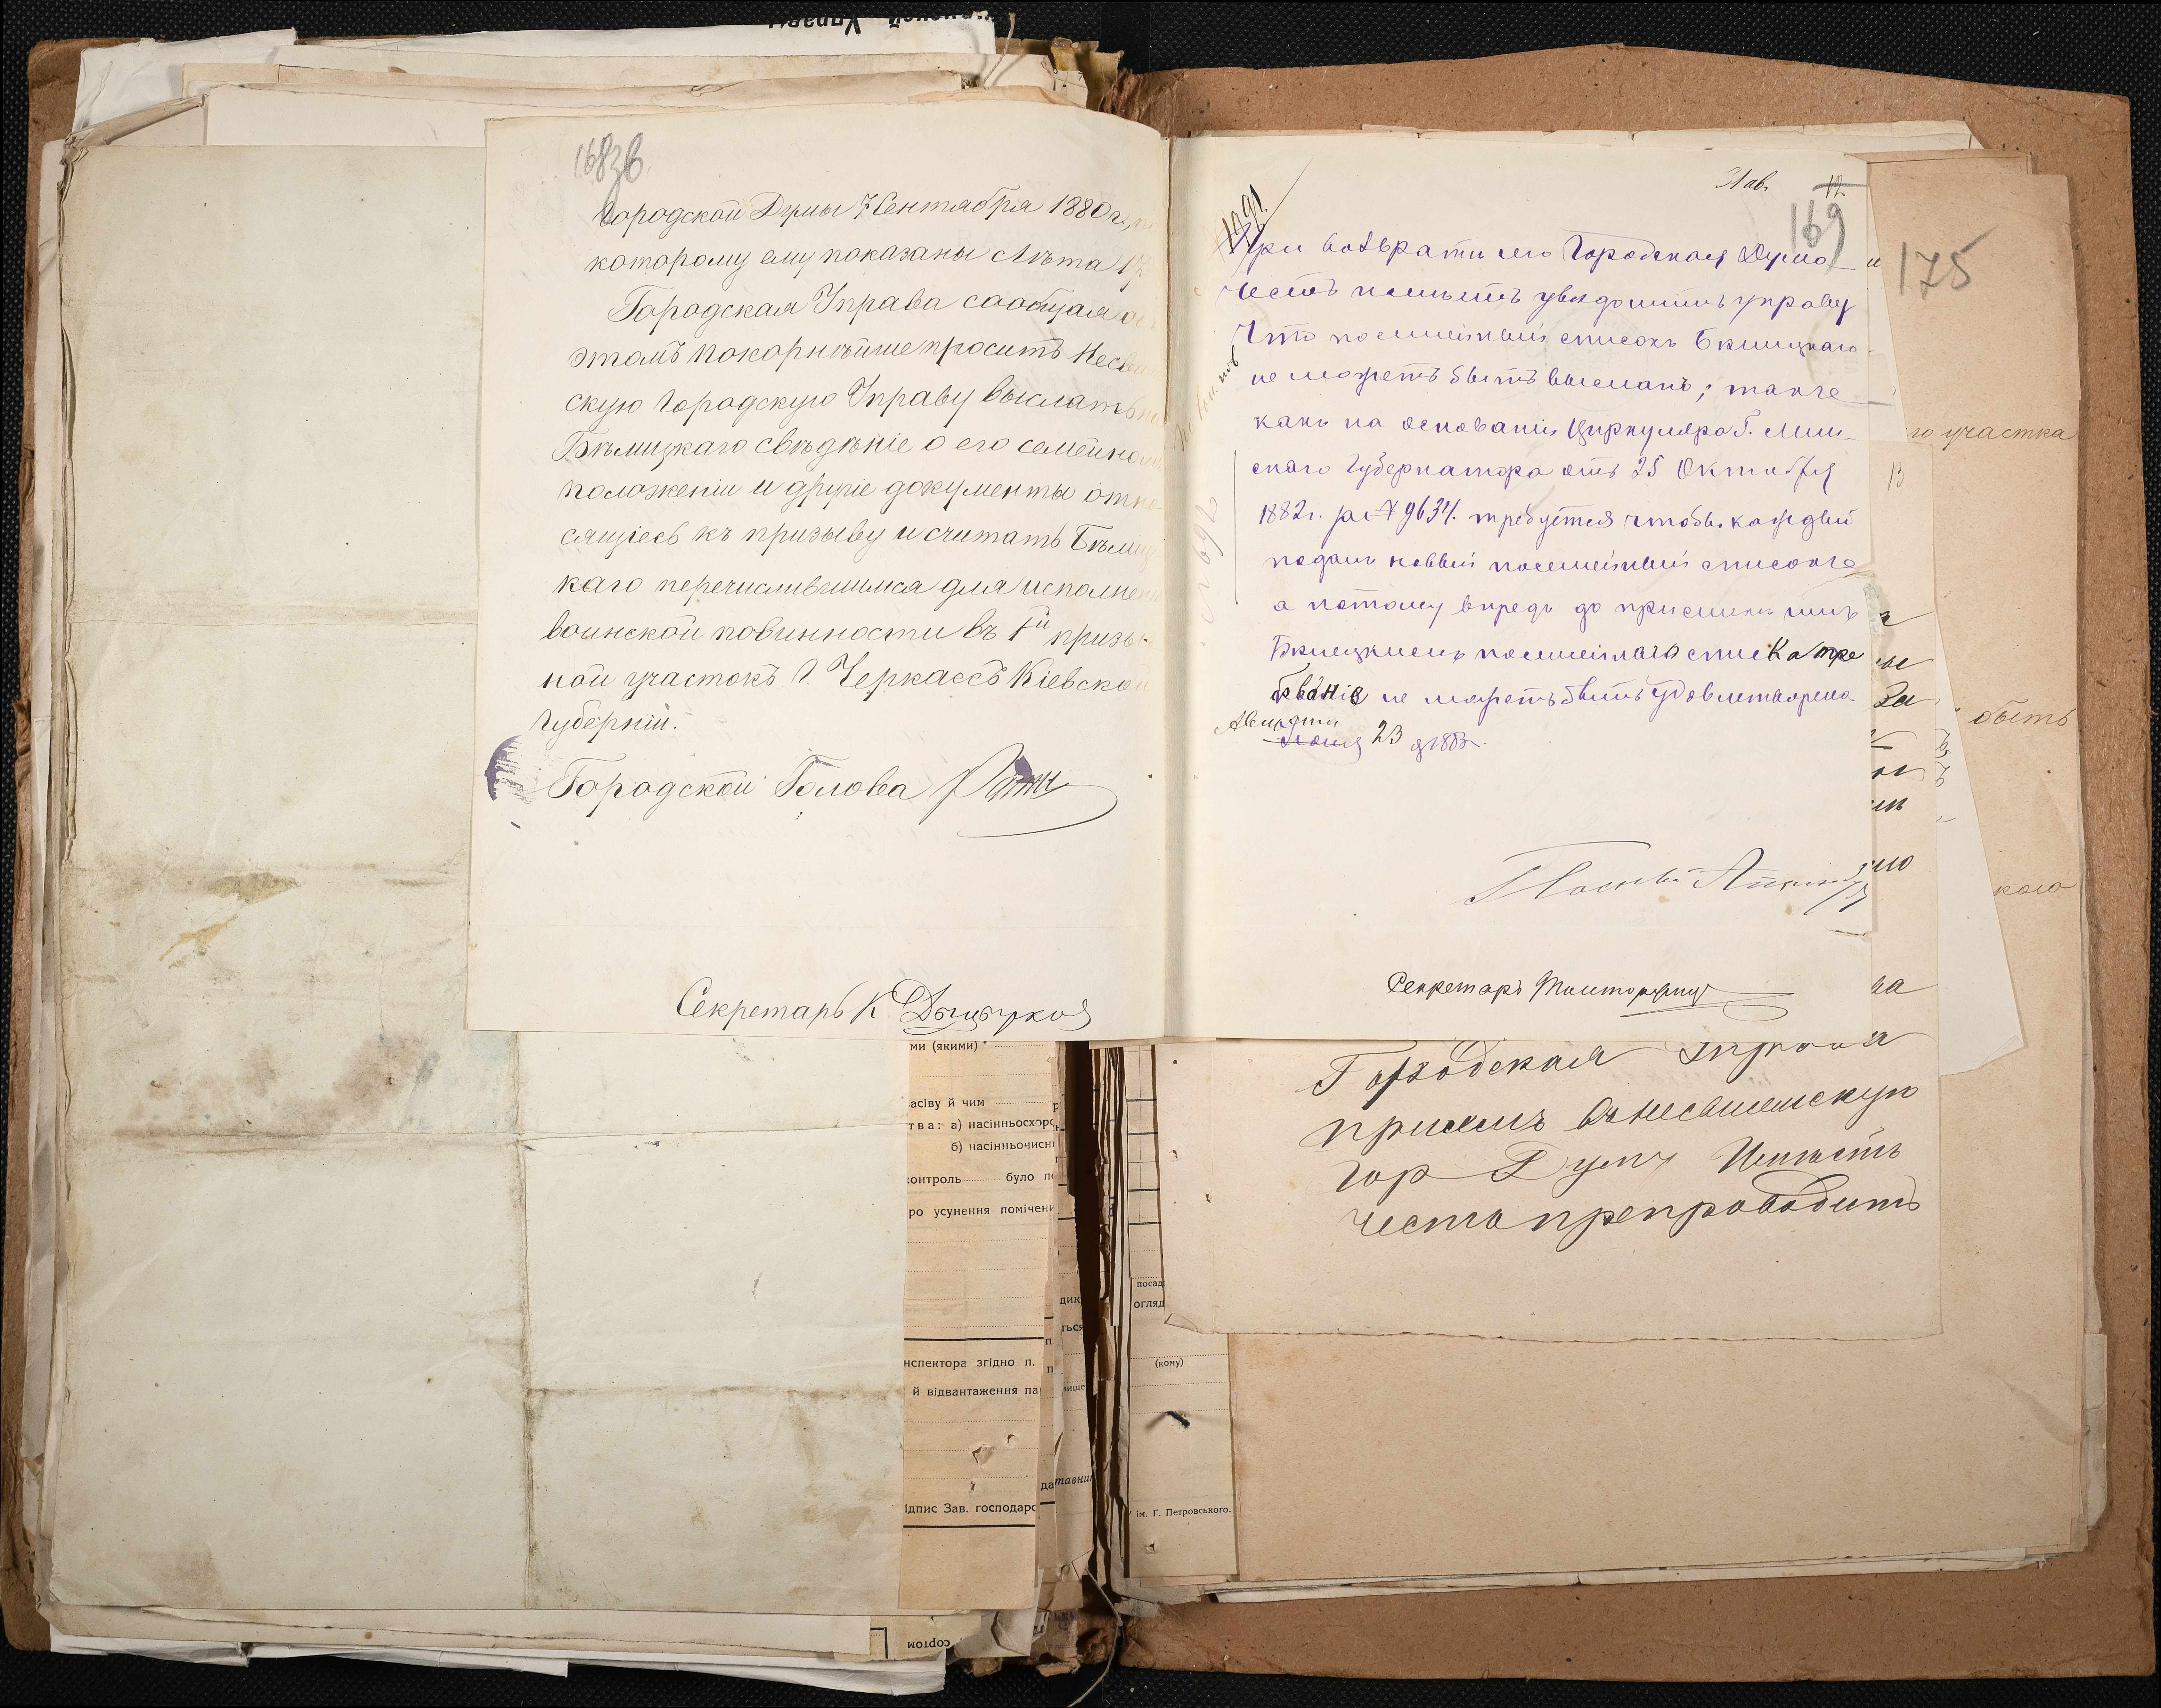 168 зв.
Городской Думы 7 Сентября 1880 г.,
которому ему показаны лѣта 17
Городская Управа сообщая о
этомъ покорнѣйше проситъ Несви
скую Городскую Управу выслать
Бѣлицкаго свѣдѣніе о его семейно
положеніи и другіе документы отно
сящіесь къ призыву и считать Бѣлиц
каго перечислившимся для исполне
воинской повинности въ 1й призы
ной участокъ г. Черкассъ Кіевской
Губерніи.
Городской Голова
Секретарь К
31 ав.
12
169
1291
При возврати сего Городская Дума
честь имѣетъ увѣдомить управу
что посемейный списокъ Бѣлицкаго
не можетъ быть высланъ; такъ
какъ на основаніи Циркуляра Г. Мин-
скаго Губернатора отъ 25 Октября
1882 г. за № 9634. требуется чтобы каждый
подалъ новый посемейный списокъ
а потому впредь до присылки имъ
Бѣлицкимъ посемейнаго списка тре
бованіе не можетъ быть удовлетворено.
Августа 23 д 1883 г.
Секретарь
175
го участка
быть
кого
за
Городская Управа
гор Думу Имѣетъ
честь препроводить
ми (якими)
асіву й чим
тва: а) насінньосхоро
б) насінньоочисн
контроль было п
ро усунення помічени
нспектора згідно п.
й відвантаження па
ідпис Зав. господарс
сортом
посад
огляд
(кому)
ім. Г. Петровського.